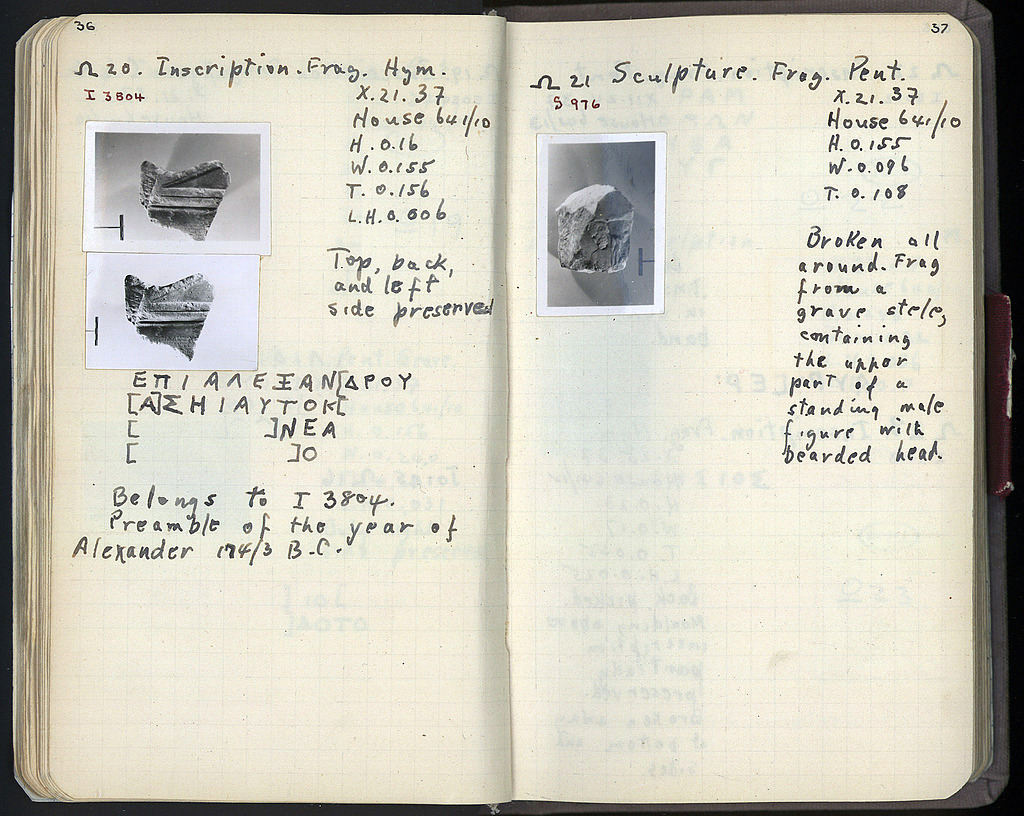 36
Ω 20. Inscription. Frag. Hym.
I 3804
X. 21. 37
House 641/10
H. 0.16
W. 0.155
T. 0.156
L.H. 0.006
Top, back,
and left
side preserved
ΕΠΙ ΑΛΕΞΑΝ[ΔΡΟΥ
[Α]ΣΗΙΑΥΤΟΚ[
[ ]ΝΕΑ
[ ]Ο
Belongs to I 3804.
Preamble of the year of
Alexander 174/3 B.C.
37
Ω 21 Sculpture. Frag. Pent.
S 976
X. 21. 37
House 641/10
H. 0.155
W. 0.096
T. 0.108
Broken all
around. Frag
from a
grave stele,
containing
the upper
part of a
standing male
figure with
bearded head.